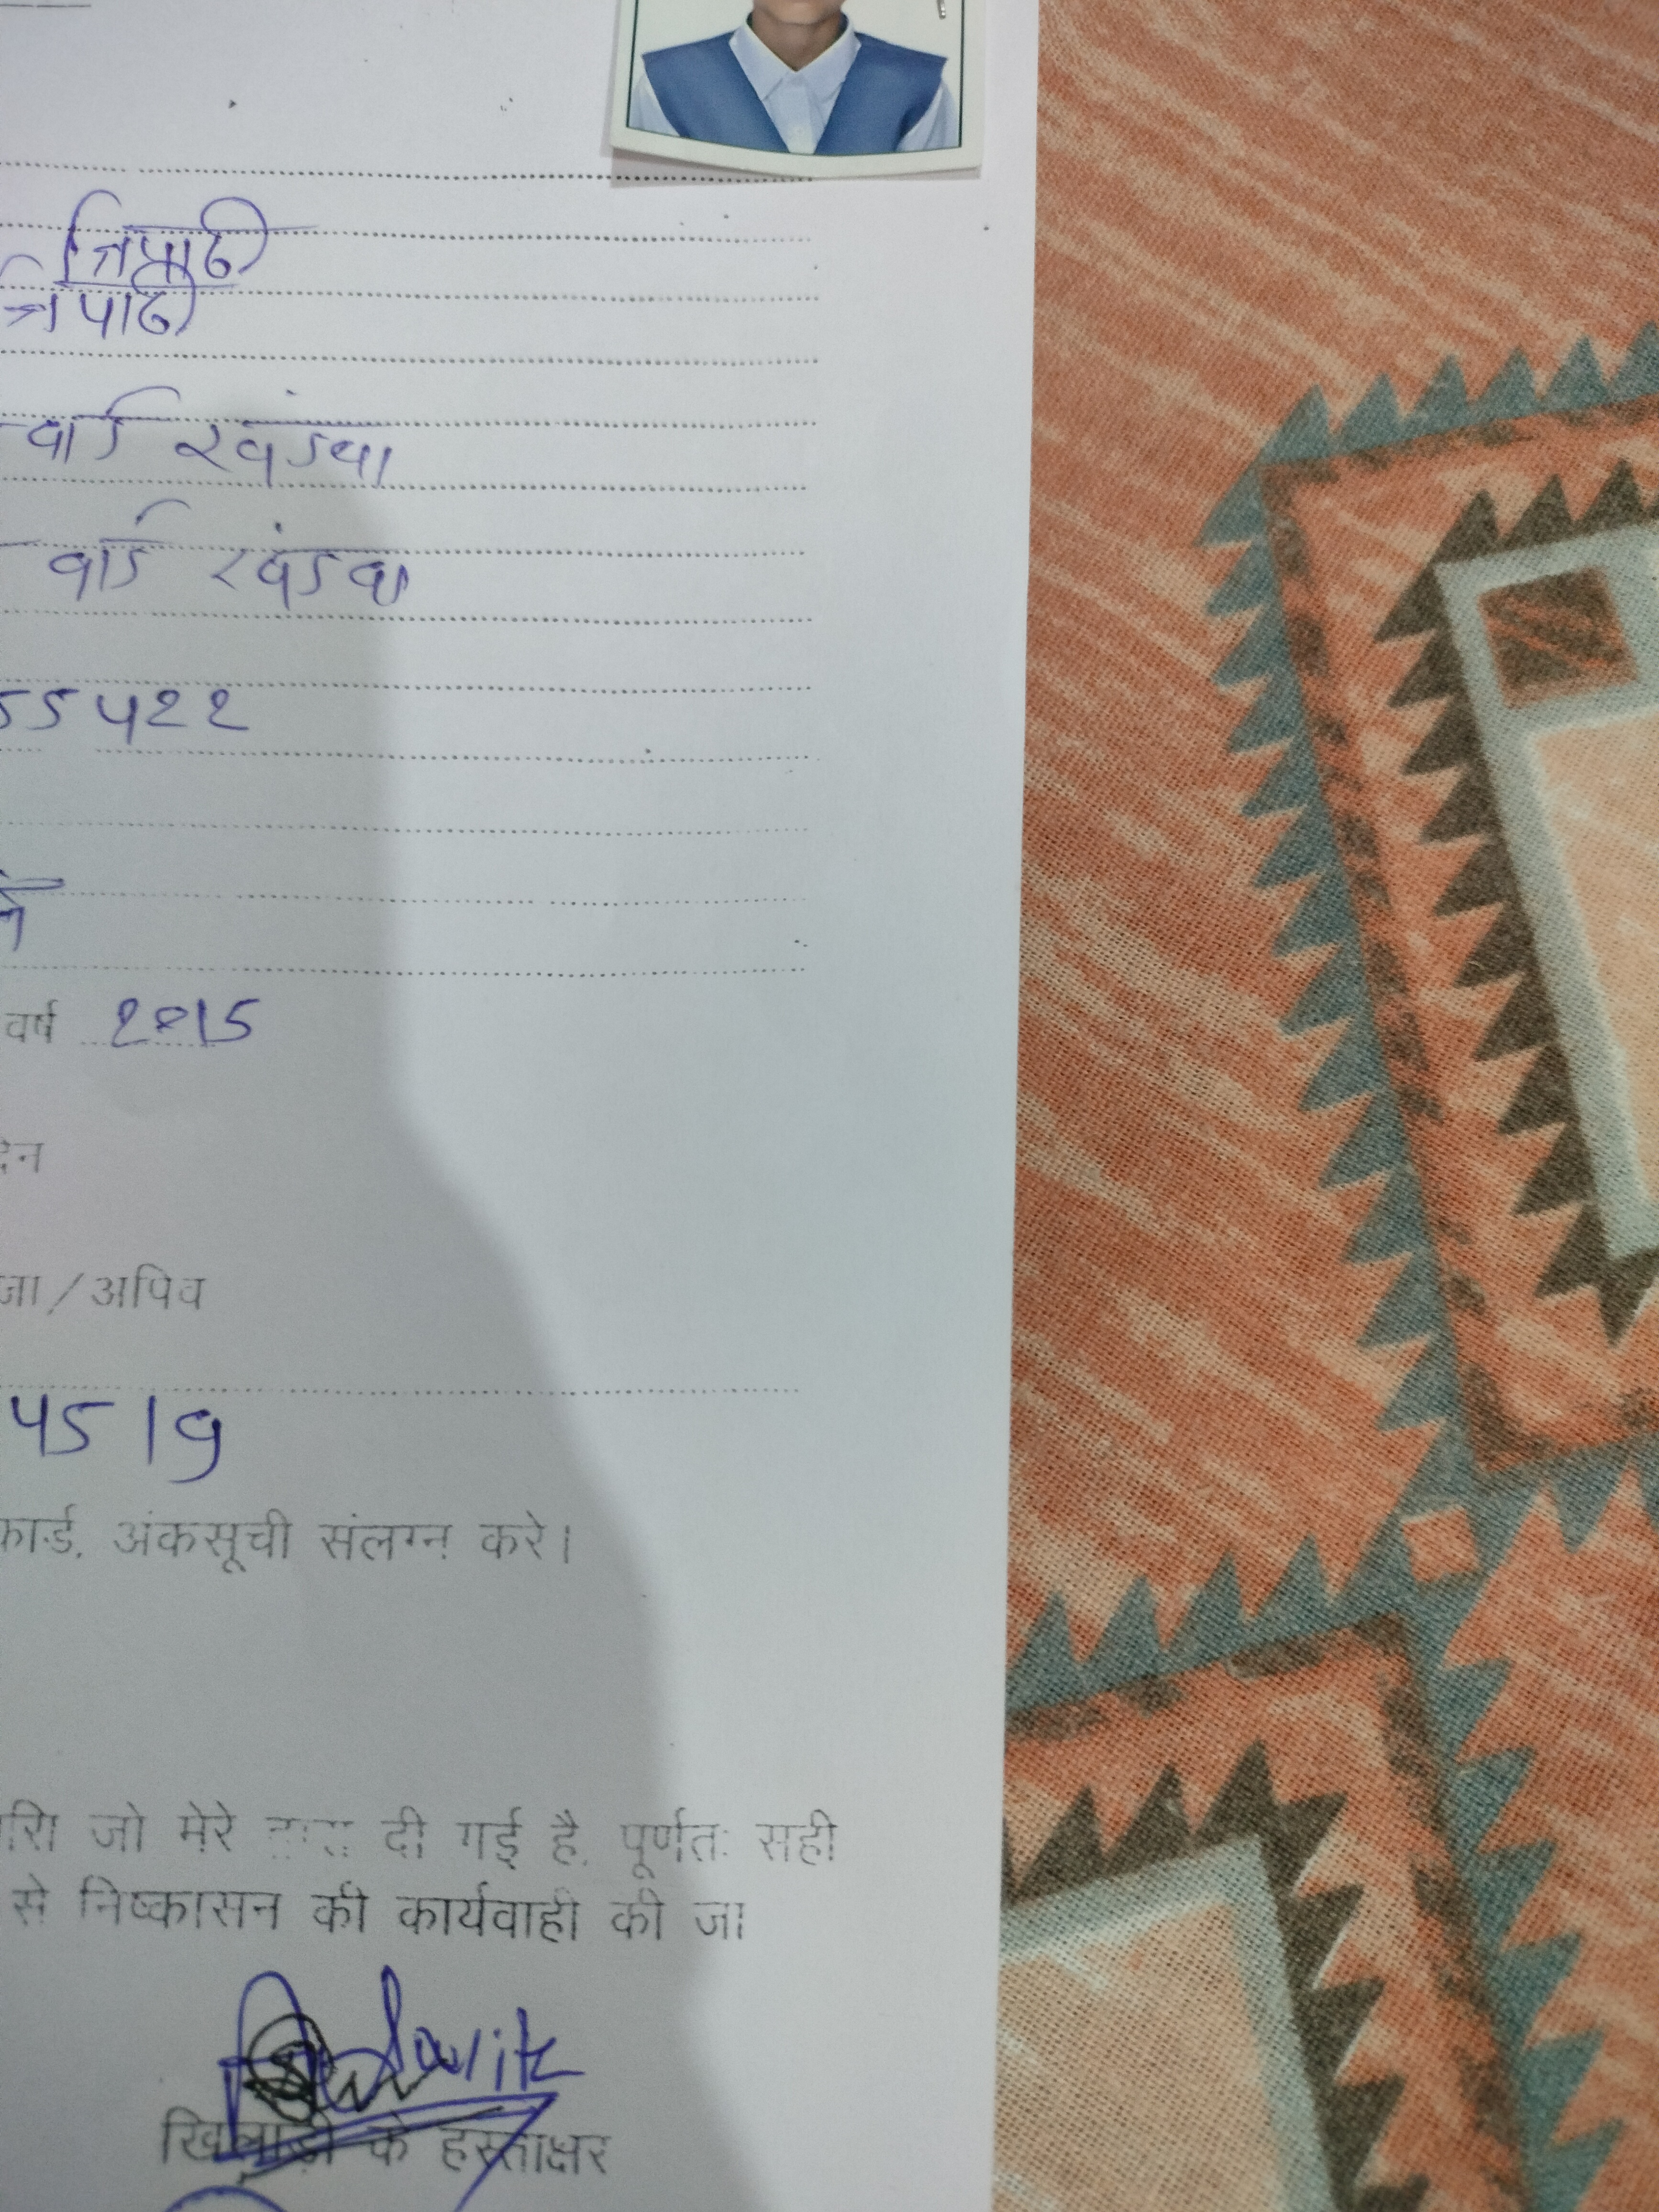 त्रिपाठी
त्रिपाठी
वार्ड खंडवा
वार्ड खंडवा
55422
वर्ष 2015
/ अपिव
4519
कार्ड, अंकसूची संलग्न करे।
जो मेरे दी गई है, पूर्णतः सही
से निष्कासन की कार्यवाही की जा
खिलाड़ी के हस्ताक्षर